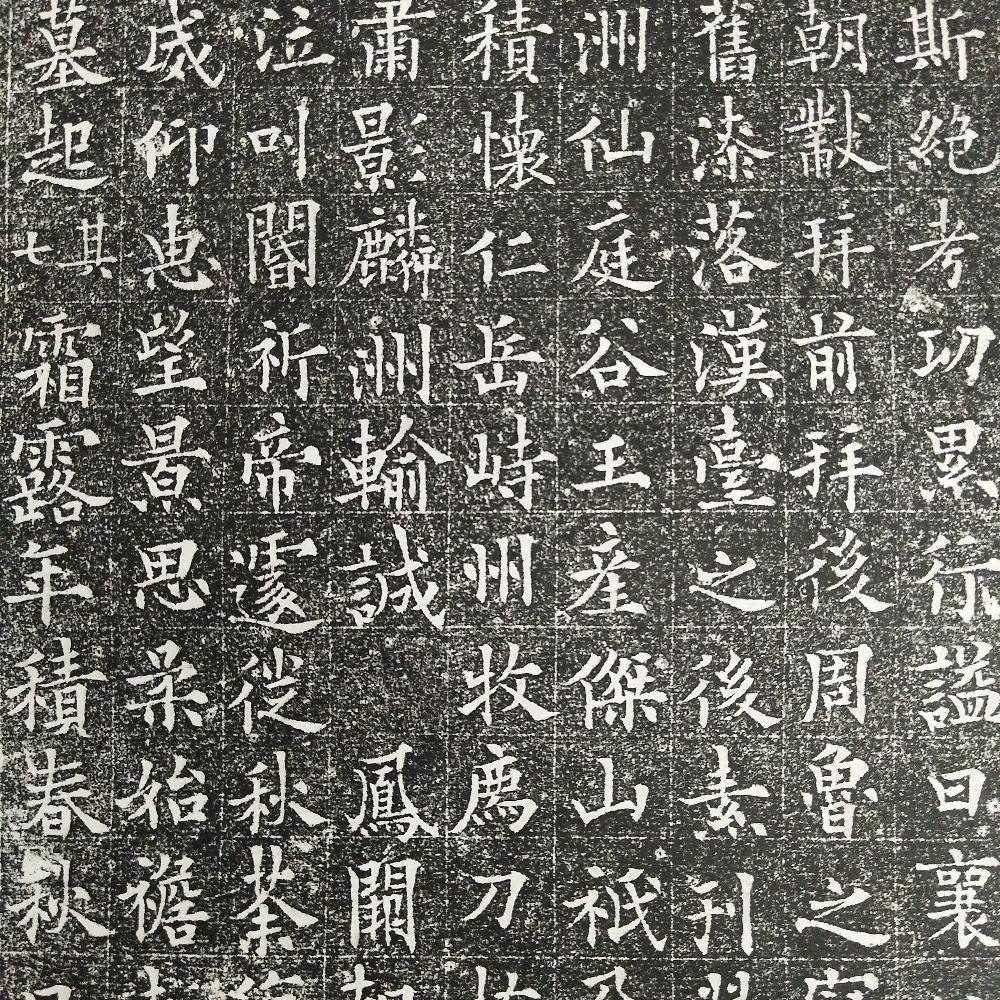 斯絶考功累行謚曰襄
朝黻拜前拜後周魯之
舊漆落漢臺之後素刊
洲仙庭谷王産傑山祇
積懷仁岳峙州牧廌刀
肅影麟洲輸誠 鳳闕
泣叫閽祈帝遽從秋荼
威仰恵望景思柔始襜
墓起其七霜露年積春秋